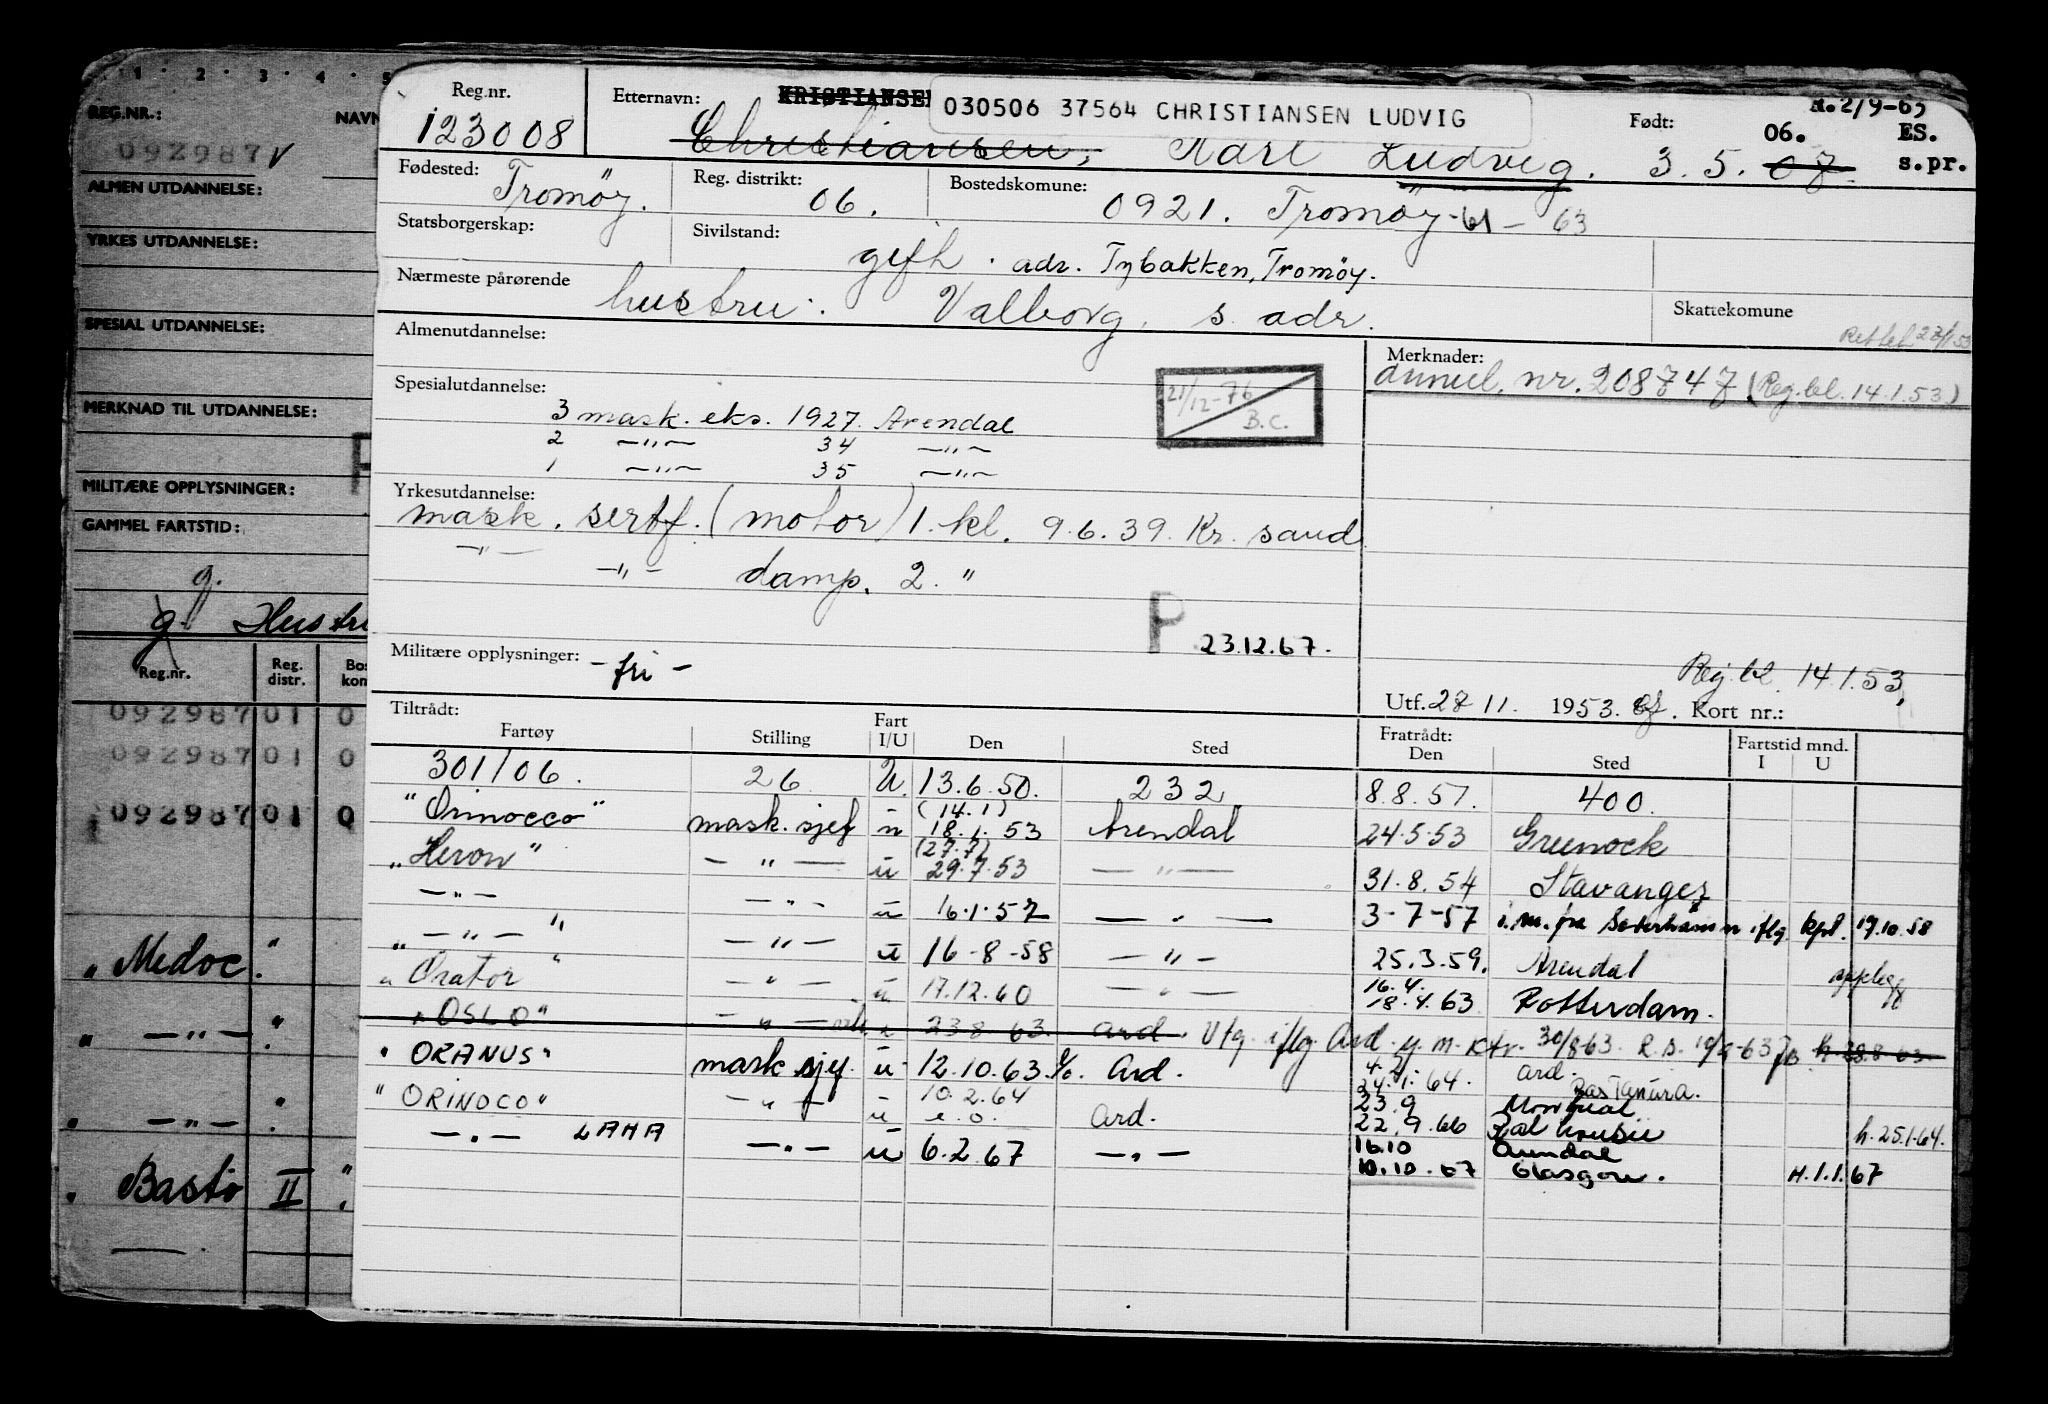 1 · 2 · 3 · 4 · 5
REG.NR.: NAVN
092987 V
ALMEN UTDANNELSE:
YRKES UTDANNELSE:
SPESIAL UTDANNELSE:
MERKNAD TIL UTDANNELSE:
MILITÆRE OPPLYSNINGER:
GAMMEL FARTSTID:
g.
g. Hustru
Reg.nr. Reg. distr. Bos kon
092987 01 0
092987 01 0
092987 01 0
„ Medoc. "
" — " — "
" — " — "
" Bastö II "
Reg.nr. Etternavn: KRISTIANSEN 030506 37564 CHRISTIANSEN LUDVIG Født: R.2/9-65
123008 Christiansen, Karl Ludvig. 3.5. 07 06. ES. s.pr.
Fødested: Tromöy. Reg. distrikt: 06. Bostedskommune: 0921. Tromöy - 61 - 63
Statsborgerskap: Sivilstand: gift. adr. Tybakken, Tromöy.
Nærmeste pårørende hustru: Valborg, s. adr. Skattekomune
Almenutdannelse: Merknader:
nr. 208747 (Reg.bl. 14.1.53)
Spesialutdannelse: 21/12-76 B.C.
3 mask. eks. 1927. Arendal
2 — " — 34 — " —
1 — " — 35 — " —
Yrkesutdannelse:
mask. sertf. (motor) 1. kl. 9.6.39. Kr. sand
— " — — " — damp. 2. "
P 23.12.67.
Militære opplysninger: - fri - Reg. bl. 14.1.53
Utf. 27 11. 1953. Kort nr.:
Tiltrådt: Fratrådt: Fartstid mnd.
Fartøy Stilling Fart I/U Den Sted Den Sted I U
301/06. 26 U. 13.6.50. 232 8.8.51. 400.
"Orinocco" mask. sjef u (14.1) 18.1.53 Arendal 24.5.53 Greenock
„Heron" — " — u (27.7) 29.7.53 — " — 31.8.54 Stavanger
— " — — " — u 16.1.57 — " — 3-7-57 i.m. fra Søderhamn iflg kpt. 19.10.58
„ — " — " — " — u 16-8-58 — " — 25.3.59. Arendal
" Orator " — " — u 17.12.60 — " — 16.4. 18.4.63 Rotterdam.
"OSLO" — " — 23.8.63. Ard. Utg. iflg Ard. 30/8-63. h. 28.8.63.
" ORANUS" mask sjef. u 12.10.63. Ard. 24.1.64. Ard. Ras Tanura.
" ORINOCO" — " — u 10.2.64 Ard. 23.9 22.9.66 Montreal h. 25.1.64.
— " — LAHA — " — u 6.2.67 — " — 16.10 10.10.67 Arendal Glasgow. H.1.1.67